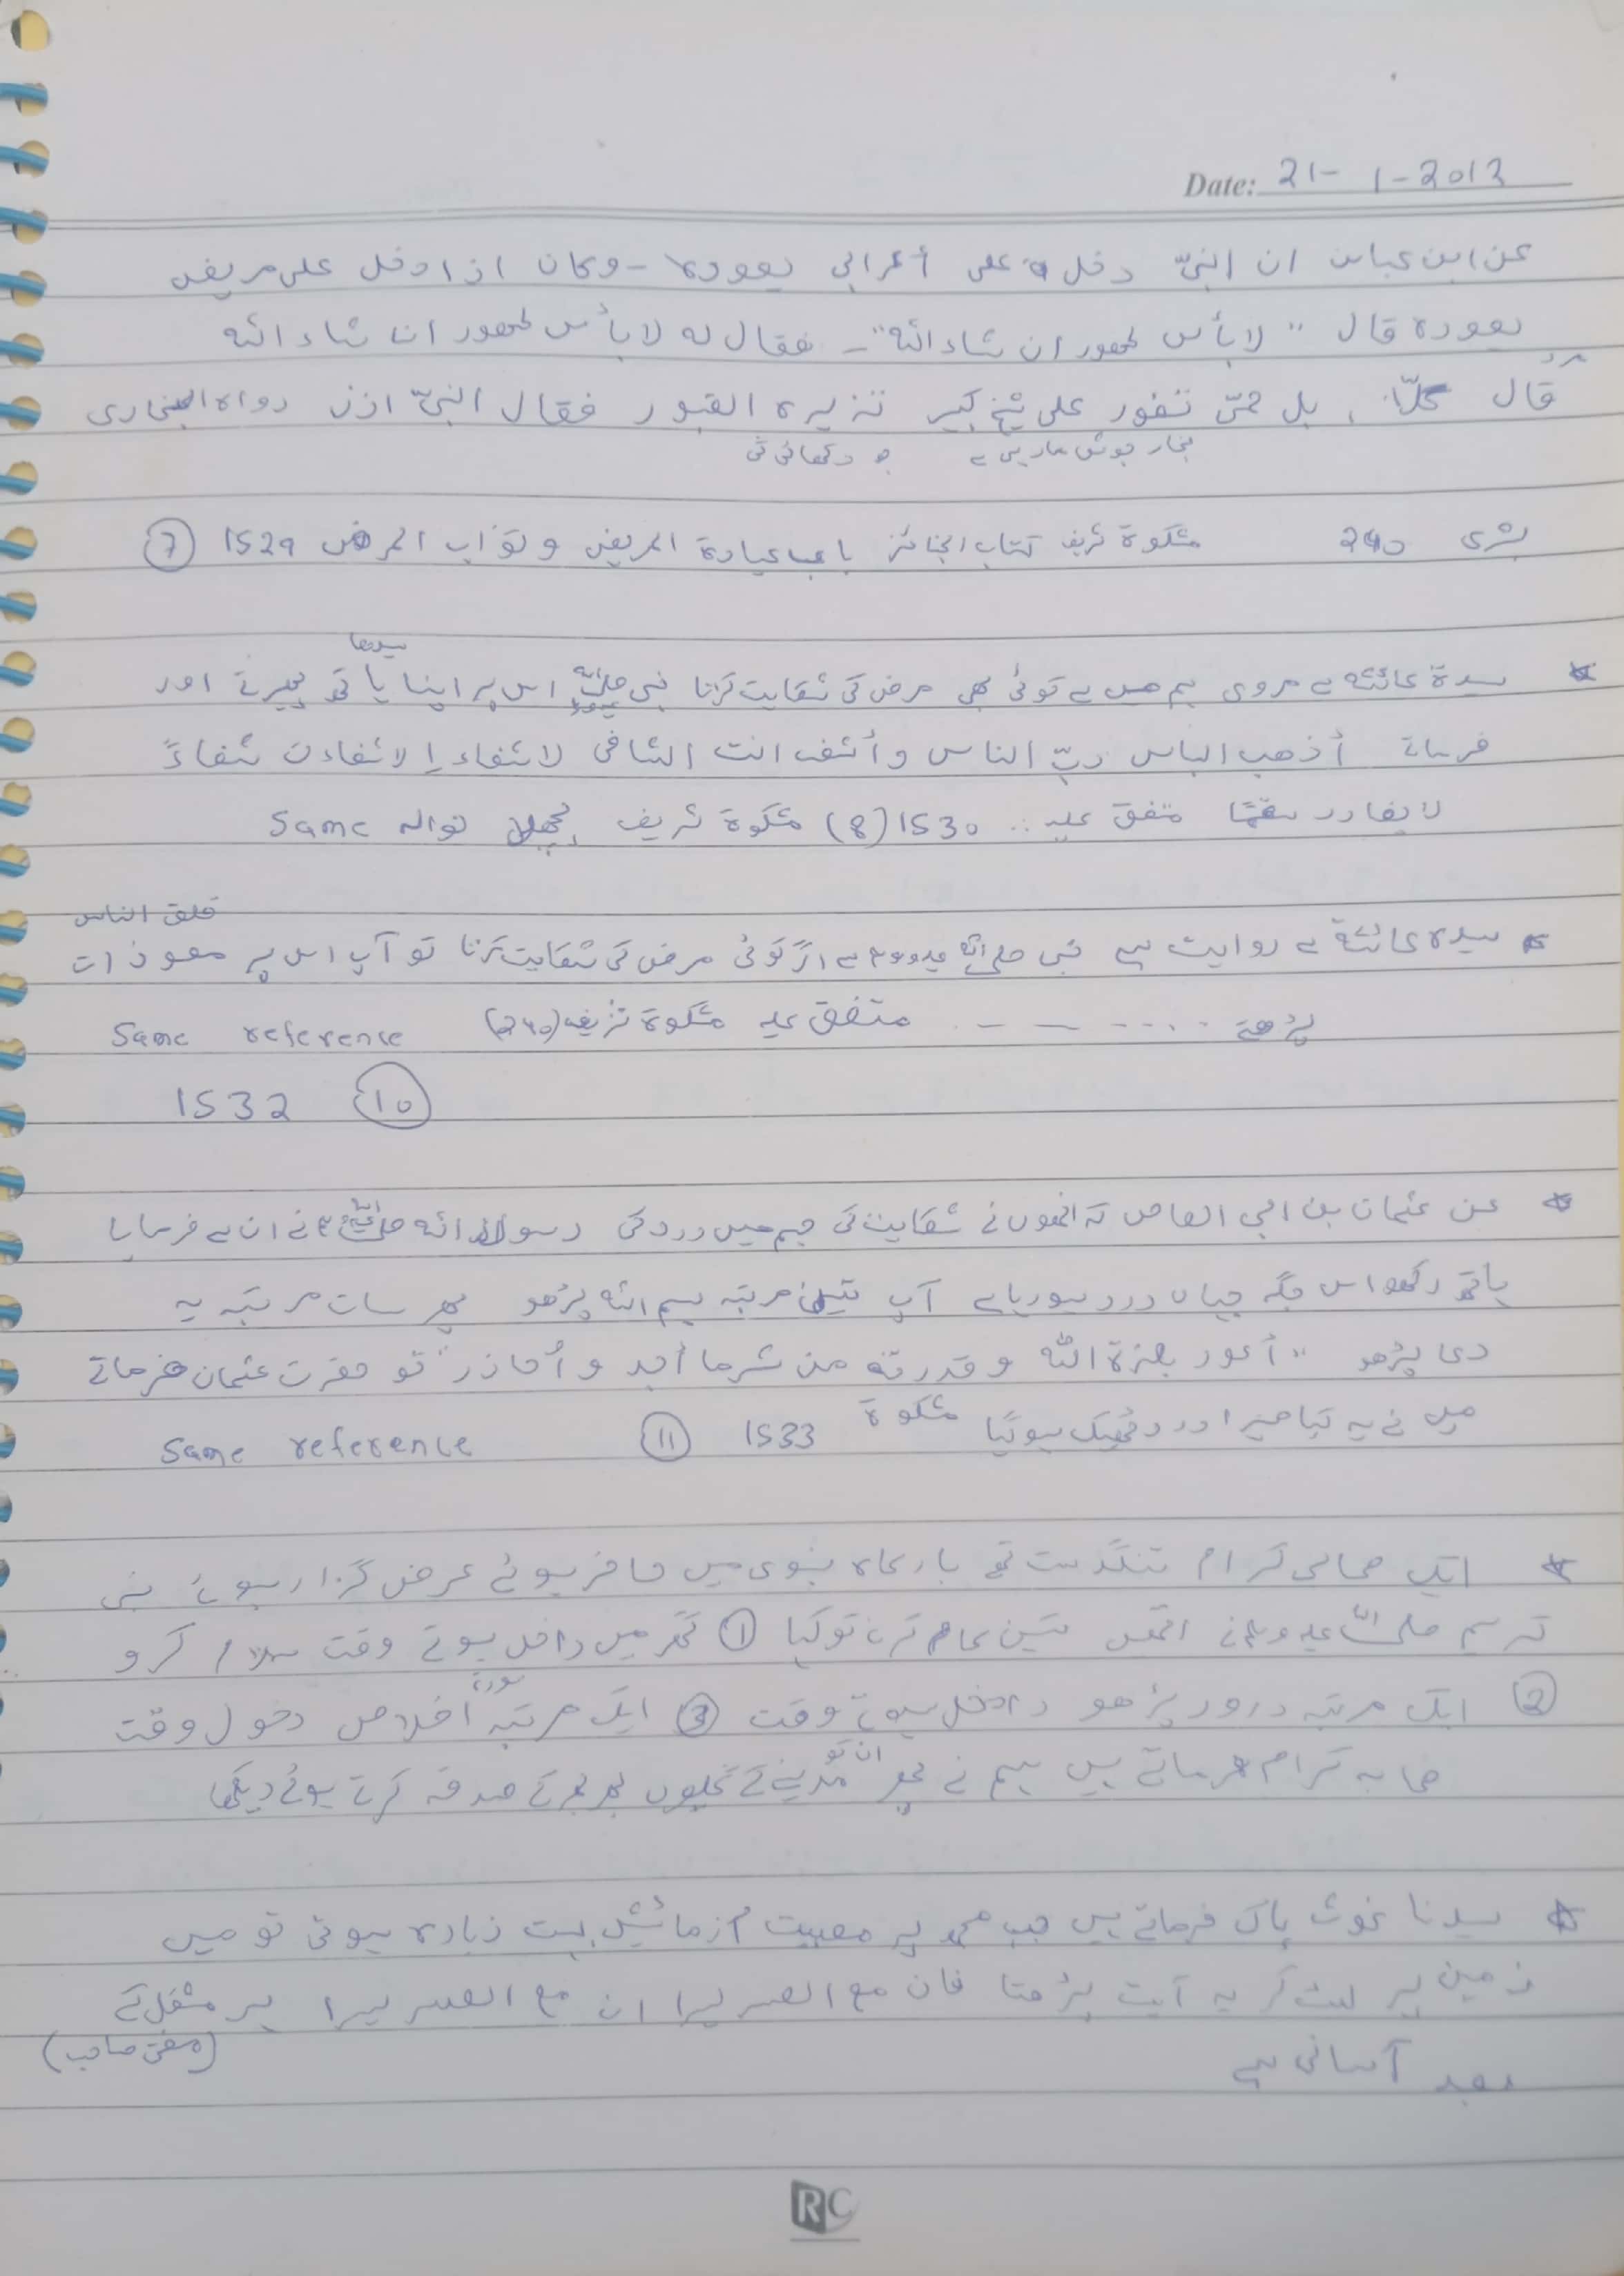 Date: 21-1-2012
عن ابن عباس ان النبیّ دخل علی أعرابی یعودہ - وکان اذا دخل علی مریض
یعودہ قال "لا بأس طھور ان شاء اللہ" - فقال لہ لا بأس طھور ان شاء اللہ
قال کلّا، بل حمّی تفور علی شیخ کبیر تزیرہ القبور فقال النبیّ اذن رواہ البخاری
بخار جوش مار رہی ہے دکھائی گی
بشری 240 مشکوۃ شریف کتاب الجنائز باب عیادۃ المریض و ثواب المرض 1529 (7)
سیدھا
* سیدۃ عائشہ سے مروی ہم میں سے کوئی بھی مرض کی شکایت کرتا نبی صلی اللہ علیہ وسلم اس پر اپنا ہاتھ پھیرتے اور
فرماتے أذھب الباس ربّ الناس وأشف انت الشافی لا شفاء إلا شفاءک شفاءً
لا یغادر سقمًا متفق علیہ :. 1530 (8) مشکوۃ شریف پچھلا حوالہ Same
فلق الناس
* سیدہ عائشۃ سے روایت ہے نبی صلی اللہ علیہ وسلم سے اگر کوئی مرض کی شکایت کرتا تو آپ اس پر معوذات
پڑھتے ..... متفق علیہ مشکوۃ شریف (240) Same reference
1532 (10)
* عن عثمان بن ابی العاص کہ انھوں نے شکایت کی جسم میں درد کی رسول اللہ صلی اللہ علیہ وسلم نے ان سے فرمایا
ہاتھ رکھو اس جگہ جہاں درد ہورہا ہے آپ تین مرتبہ بسم اللہ پڑھو پھر سات مرتبہ یہ
دعا پڑھو "أعوذ بعزۃ اللہ و قدرتہ من شر ما أجد و أحاذر" تو حضرت عثمان فرماتے
میں نے یہ کیا میرا درد ٹھیک ہوگیا مشکوۃ 1533 (11) Same reference
* ایک صحابی کرام تنگدست تھے بارگاہ نبوی میں حاضر ہوئے عرض گزار ہوئے نبی
کریم صلی اللہ علیہ وسلم نے انھیں تین کام کرنے کو کہا (1) گھر میں داخل ہوتے وقت سلام کرو
(2) ایک مرتبہ درود پڑھو داخل ہوتے وقت (3) ایک مرتبہ سورۃ اخلاص دخول وقت
صحابہ کرام فرماتے ہیں ہم نے پھر ان کو مدینے کے گلیوں بھر بھر کے صدقہ کرتے ہوئے دیکھا
* سیدنا غوث پاک فرماتے ہیں جب مجھ پر مصیبت آزمائش بہت زیادہ ہوتی تو میں
زمین پر لیٹ کر یہ آیت پڑھتا فان مع العسر یسرا ان مع العسر یسرا ہر مشکل کے
بعد آسانی ہے (مفتی صاحب)
RC